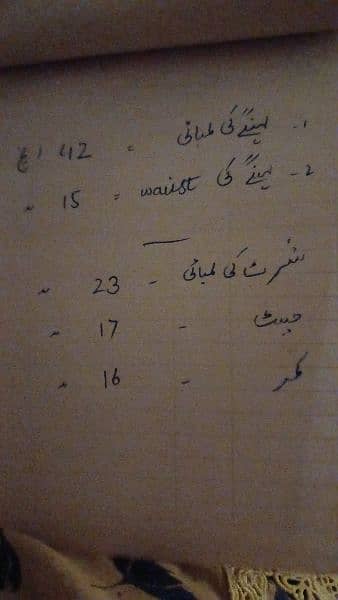 1۔ لہنگے کی لمبائی = 42 انچ
2۔ لہنگے کی waist = 15 "
شرٹ کی لمبائی - 23 "
چیسٹ - 17 "
کمر - 16 "